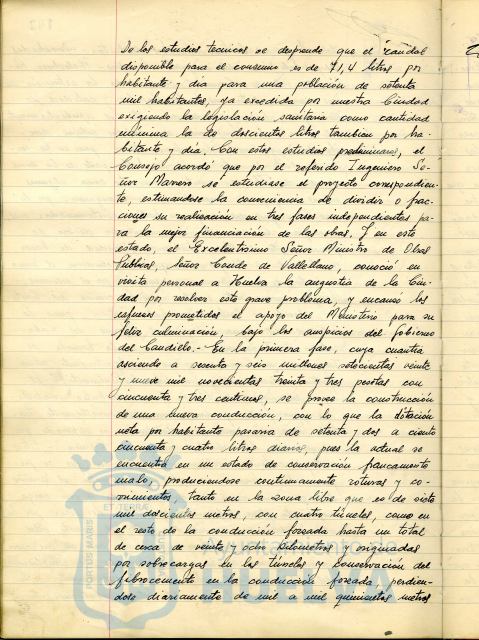 De los estudios tecnicos se desprende que el caudal
disponible para el consumo es de 71,4 litros por
habitante y dia para una población de setenta
mil habitantes, ya excedida por nuestra Ciudad
exigiendo la legislación sanitaria como cantidad
minima la de doscientos litros tambien por ha-
bitante y dia. Con estos estudios preliminares, el
Consejo acordó que por el referido Ingeniero Se-
ñor Marrero se estudiase el proyecto correspondien-
te, estimandose la conveniencia de dividir o frac-
cionar su realización en tres fases independientes pa-
ra la mejor financiación de las obras. Y en este
estado, el Excelentisimo Señor Ministro de Obras
Publicas, Señor Conde de Vallellano, conoció en
visita personal a Huelva la angustia de la Ciu-
dad por resolver este grave problema, y encauzó los
esfuerzos prometidos el apoyo del Ministerio para su
feliz culminación, bajo los auspicios del Gobierno
del Caudillo.- En la primera fase, cuya cuantia
asciende a sesenta y seis millones setecientas veinte
y nueve mil novecientas treinta y tres pesetas con
cincuenta y tres centimos, se prevee la construcción
de una nueva conducción, con lo que la dotación
neta por habitante pasaria de setenta y dos a ciento
cincuenta y cuatro litros diarios, pues la actual se
encuentra en un estado de conservación francamente
malo, produciendose continuamente roturas y
tanto en la zona libre que es de siete
mil doscientos metros, con cuatro túneles, como en
el resto de la conducción forzada hasta un total
de cerca de veinte y ocho kilometros y originadas
por sobrecargas en los túneles y conservación del
fibrocemento en la conducción forzada, perdien-
dose diariamente de mil a mil quinientos metros
AYUNTAMIENTO DE
HUELVA
PORTUS MARIS